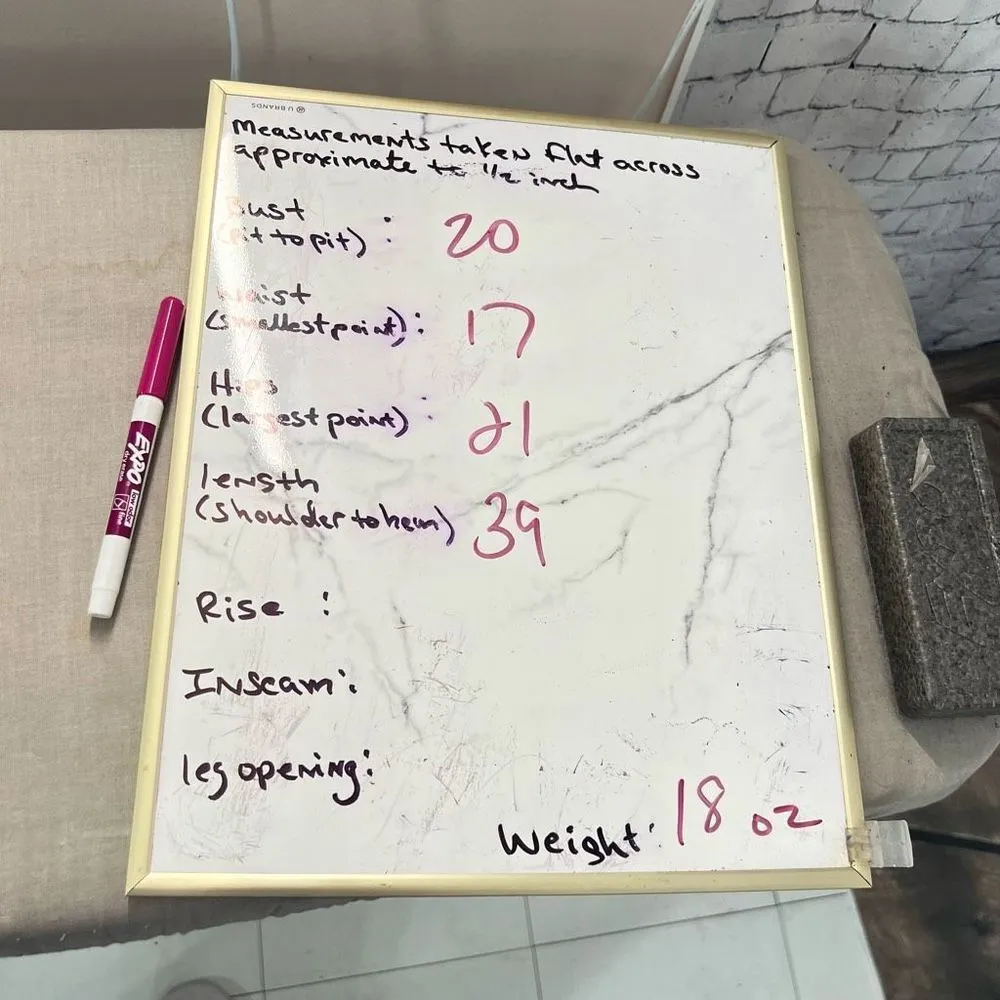 U BRANDS
Measurements taken flat across
approximate to 1/2 inch
Bust
(pit to pit) : 20
Waist
(smallest point) : 17
Hips
(largest point) : 21
length
(shoulder to hem) 39
Rise :
Inseam :
leg opening :
Weight : 18 oz
EXPO
low odor
fine